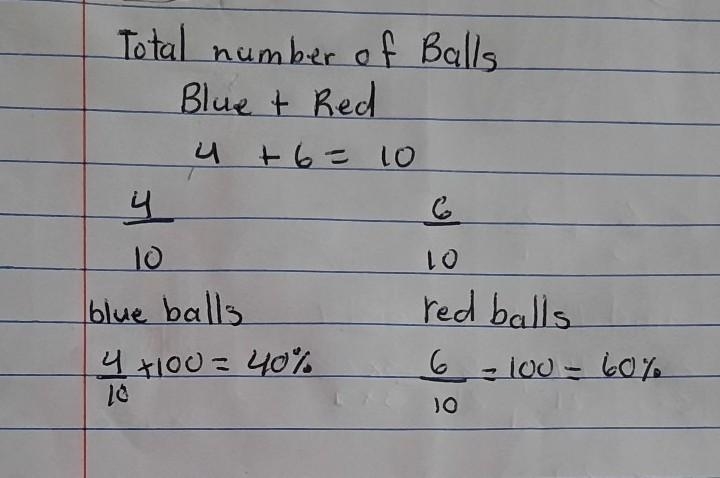 Total number of Balls
Blue + Red
4 + 6 = 10
4/10 6/10
blue balls red balls
4/10 +100 = 40% 6/10 = 100 = 60%